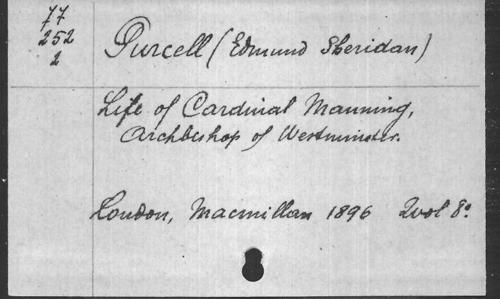 77
252
2
Purcell (Edmund Sheridan)
Life of Cardinal Manning,
Archbishop of Westminster.
London, Macmillan 1896 2 vol 8°